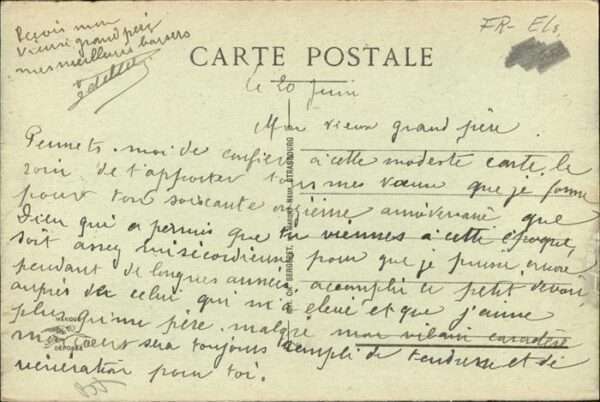 Reçois mon
vieux grand père
mes meilleurs baisers
FR- Els
CARTE POSTALE
Le 20 Juin
Mon vieux grand père.
Permets-moi de confier à cette modeste carte le
soin de t'apporter tous mes vœux que je forme
pour ton soixante onzième anniversaire que
Dieu qui a permis que tu viennes à cette époque,
soit assez miséricordieux pour que je puisse encore
pendant de longues années accomplir ce petit devoir
auprès de celui qui m'a élevé et que j'aime
plus qu'un père. malgré mon vilain caractère
mon cœur sera toujours rempli de tendresse et de
vénération pour toi.
STRASBOURG